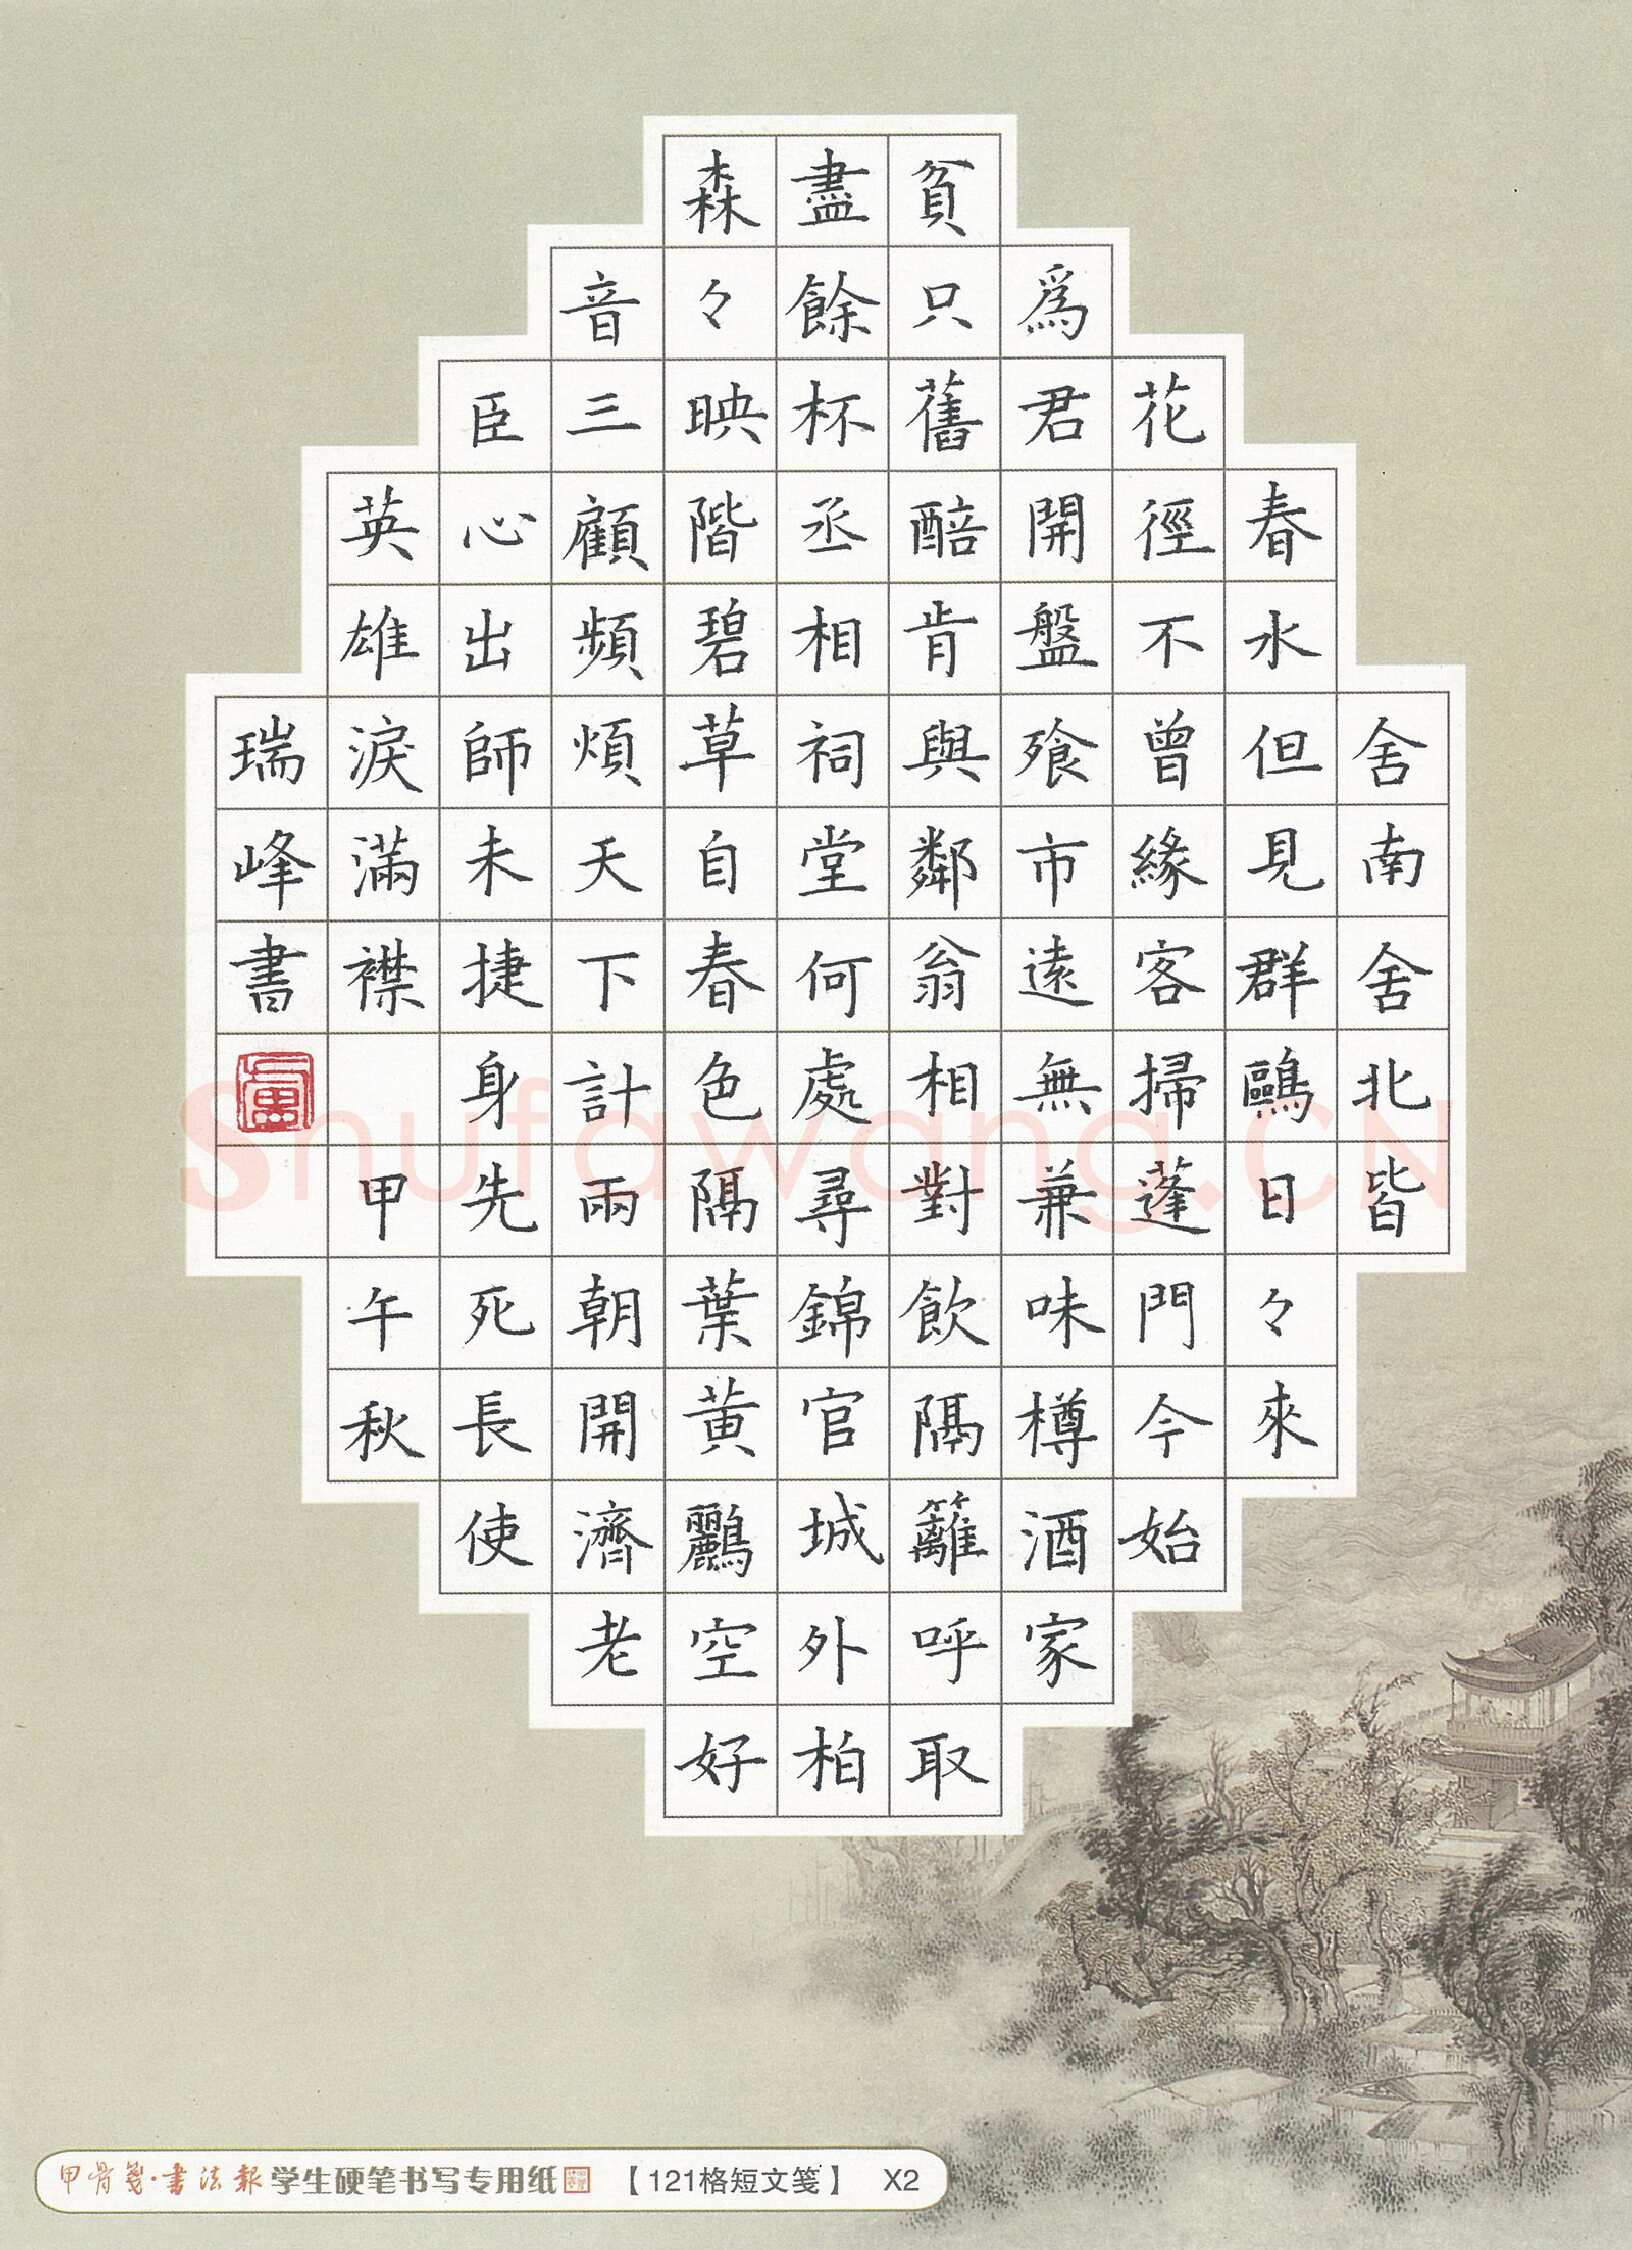 舍南舍北皆
春水但見群鷗日々來
花徑不曾緣客掃蓬門今始
爲君開盤飱市遠無兼味樽酒家
貧只舊醅肯與鄰翁相對飲隔籬呼取
盡餘杯丞相祠堂何處尋錦官城外柏
森々映階碧草自春色隔葉黄鸝空好
音三顧頻煩天下計兩朝開濟老
臣心出師未捷身先死長使
英雄淚滿襟 甲午秋
瑞峰書
Shufawang.CN
甲骨笺·书法报 学生硬笔书写专用纸 【121格短文笺】 X2